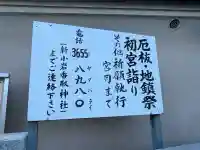 厄祓・地鎮祭
初宮詣り
その他祈願執行
宮司まで
電話 3655-八九八〇
ヤクハライ
新小岩香取神社
までご連絡下さい